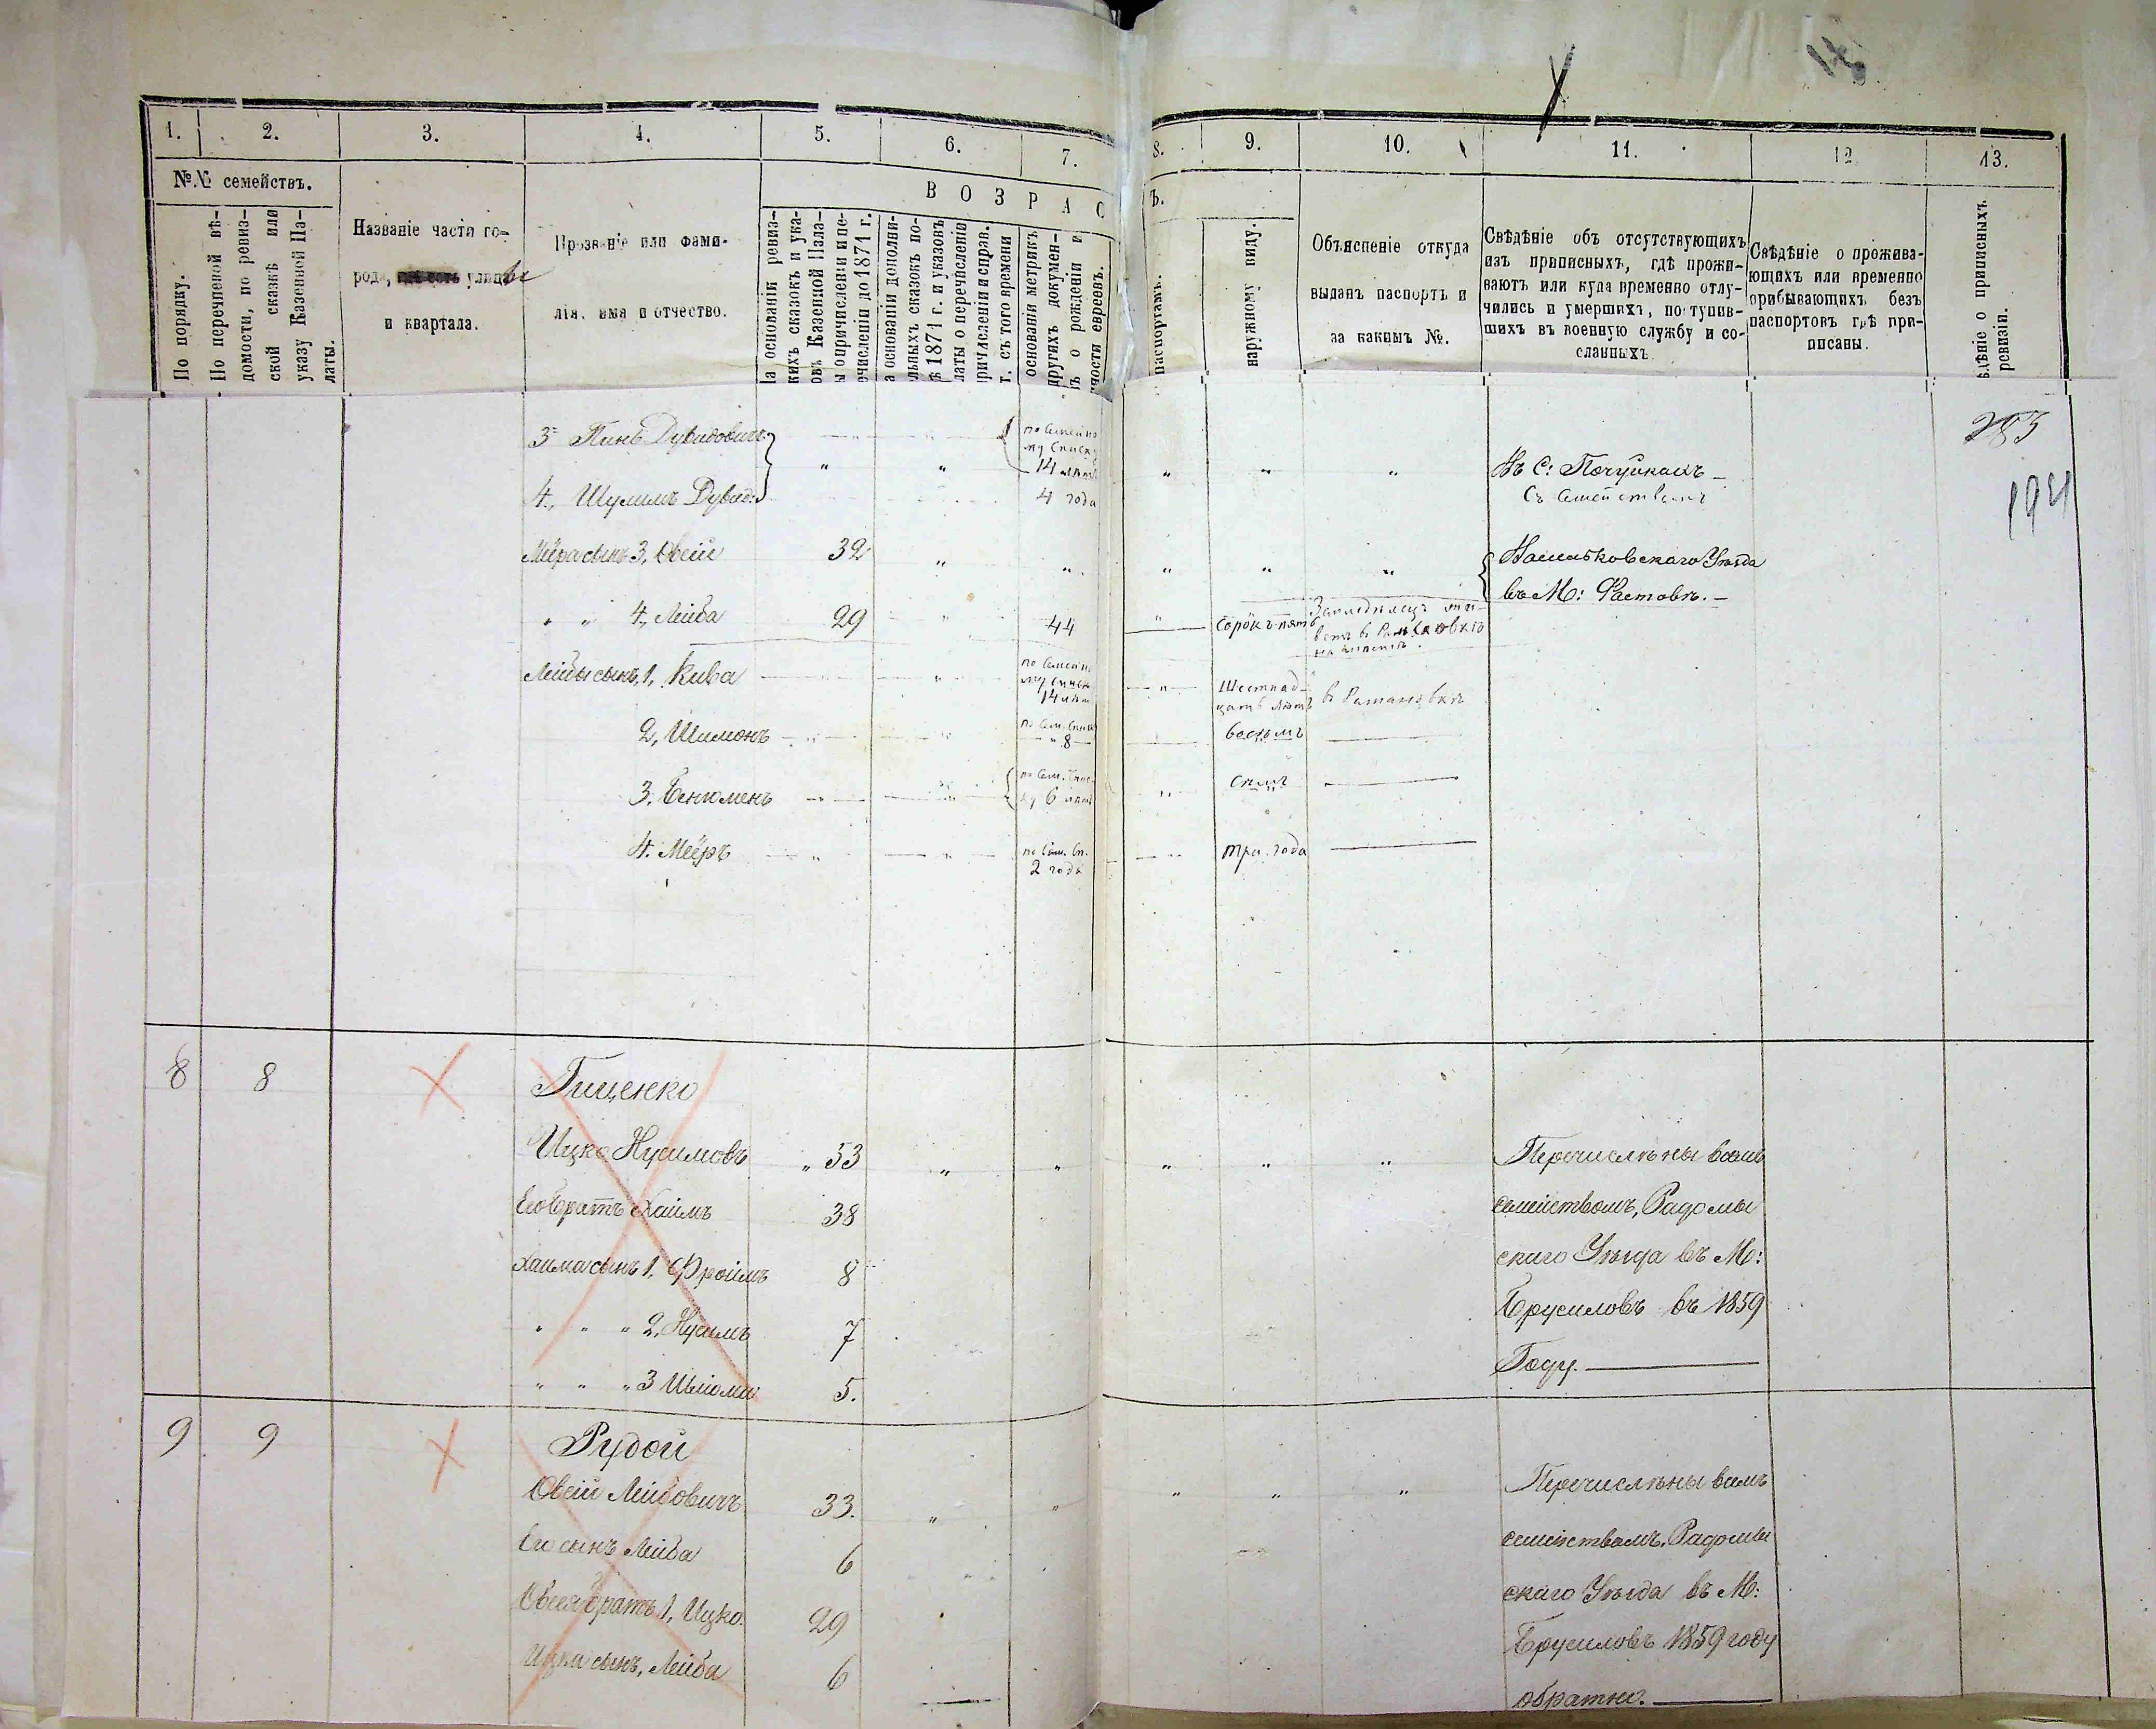 1. 2. 3. 4. 5. 6. 7. 8. 9. 10. 11. 12 13.
№№ семействъ.
По порядку.
По перечневой вѣ-
домости, по ревиз-
ской сказкѣ или
указу Казенной Па-
латы.
Названіе части го-
рода, улицы
и квартала.
Прозваніе или фами-
лія, имя и отчество.
ВОЗРАС
Ъ.
На основаніи ревиз-
скихъ сказокъ и ука-
зовъ Казенной Пала-
ты о причисленіи и пе-
речисленіи до 1871 г.
а основаніи дополни-
льныхъ сказокъ по-
ѣ 1871 г. и указовъ
латы о перечисленіи
причисленіи и справ.
г. съ того времени
основаніи метрикъ
другихъ докумен-
ъ о рожденіи и
чности евреевъ.
паспортамъ.
наружному виду.
Объясненіе откуда
выданъ паспортъ и
за какимъ №.
Свѣдѣніе объ отсутствующихъ
изъ приписныхъ, гдѣ прожи-
ваютъ или куда временно отлу-
чились и умершихъ, поступив-
шихъ въ военную службу и со-
сланныхъ.
Свѣдѣніе о прожива-
ющихъ или временно
прибывающихъ безъ
паспортовъ гдѣ при-
писаны.
ѣдѣніе о приписныхъ
ревизіи.
283
194
3 Пинь Дувидовичъ " " по семейно
му списку
14 лѣтъ
" " " " " Въ С: Почуйкахъ -
съ семействомъ
4, Шулимъ Дувид: 4 года
Мѣра сынъ 3, Овсій 39 " " " " " Васильковскаго Уѣзда
въ М: Фастовѣ. -
" " 4, Лейба 29 " 44 " Сорокъ пять
Лейбы сынъ, 1, Кива " по семейно
му списк
14 лѣт
" Шестнад-
цать лѣтъ в Романовкѣ
2, Шимонъ " " по сем. спис
" 8 восемь
3, Бенюменъ " " по сем. спис
ку 6 лѣтъ " семь
4. Меёръ " " по сем. сп.
2 года " три года
8 8 Гиценко
Ицко Нусимовъ " 53 " " " " " Перечислѣны всемъ
Его братъ Хаимъ 38 семействомъ, Радомы
Хаима сынъ 1, Фроимъ 8 скаго Уѣзда въ М:
" " " 2, Нусимъ 7 Брусиловъ въ 1859
" " " 3 Шліома 5. Году.
9 9 Рудой
Овсій Лейбовичъ 33. " " " " " Перечислѣны всемъ
Его сынъ Лейба 6 семействомъ, Радомы
Овсея братъ 1, Ицко. 29 скаго Уѣзда въ М:
Ицка сынъ, Лейба 6 Брусиловъ 1859 году
обратно.